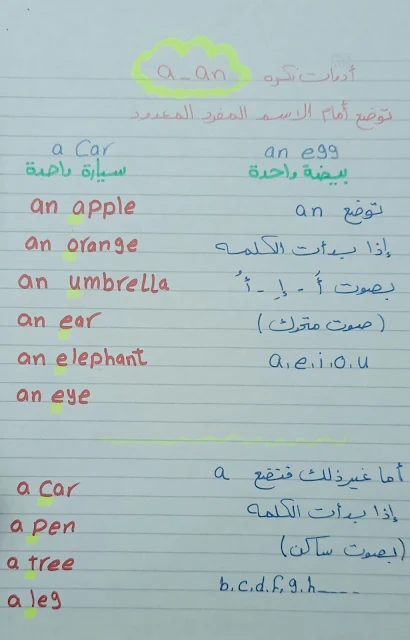 a - an أدوات نكره
توضع أمام الاسم المفرد المعدود
a Car an egg
سيارة واحدة بيضة واحدة
an apple
an orange
an umbrella
an ear
an elephant
an eye
توضع an
إذا بدأت الكلمه
بصوت أَ - إِ - أُ
(صوت متحرك)
a, e, i, o, u
a car
a pen
a tree
a leg
أما غير ذلك فتضع a
إذا بدأت الكلمه
(بصوت ساكن)
b, c, d, f, g, h_ _ _ _